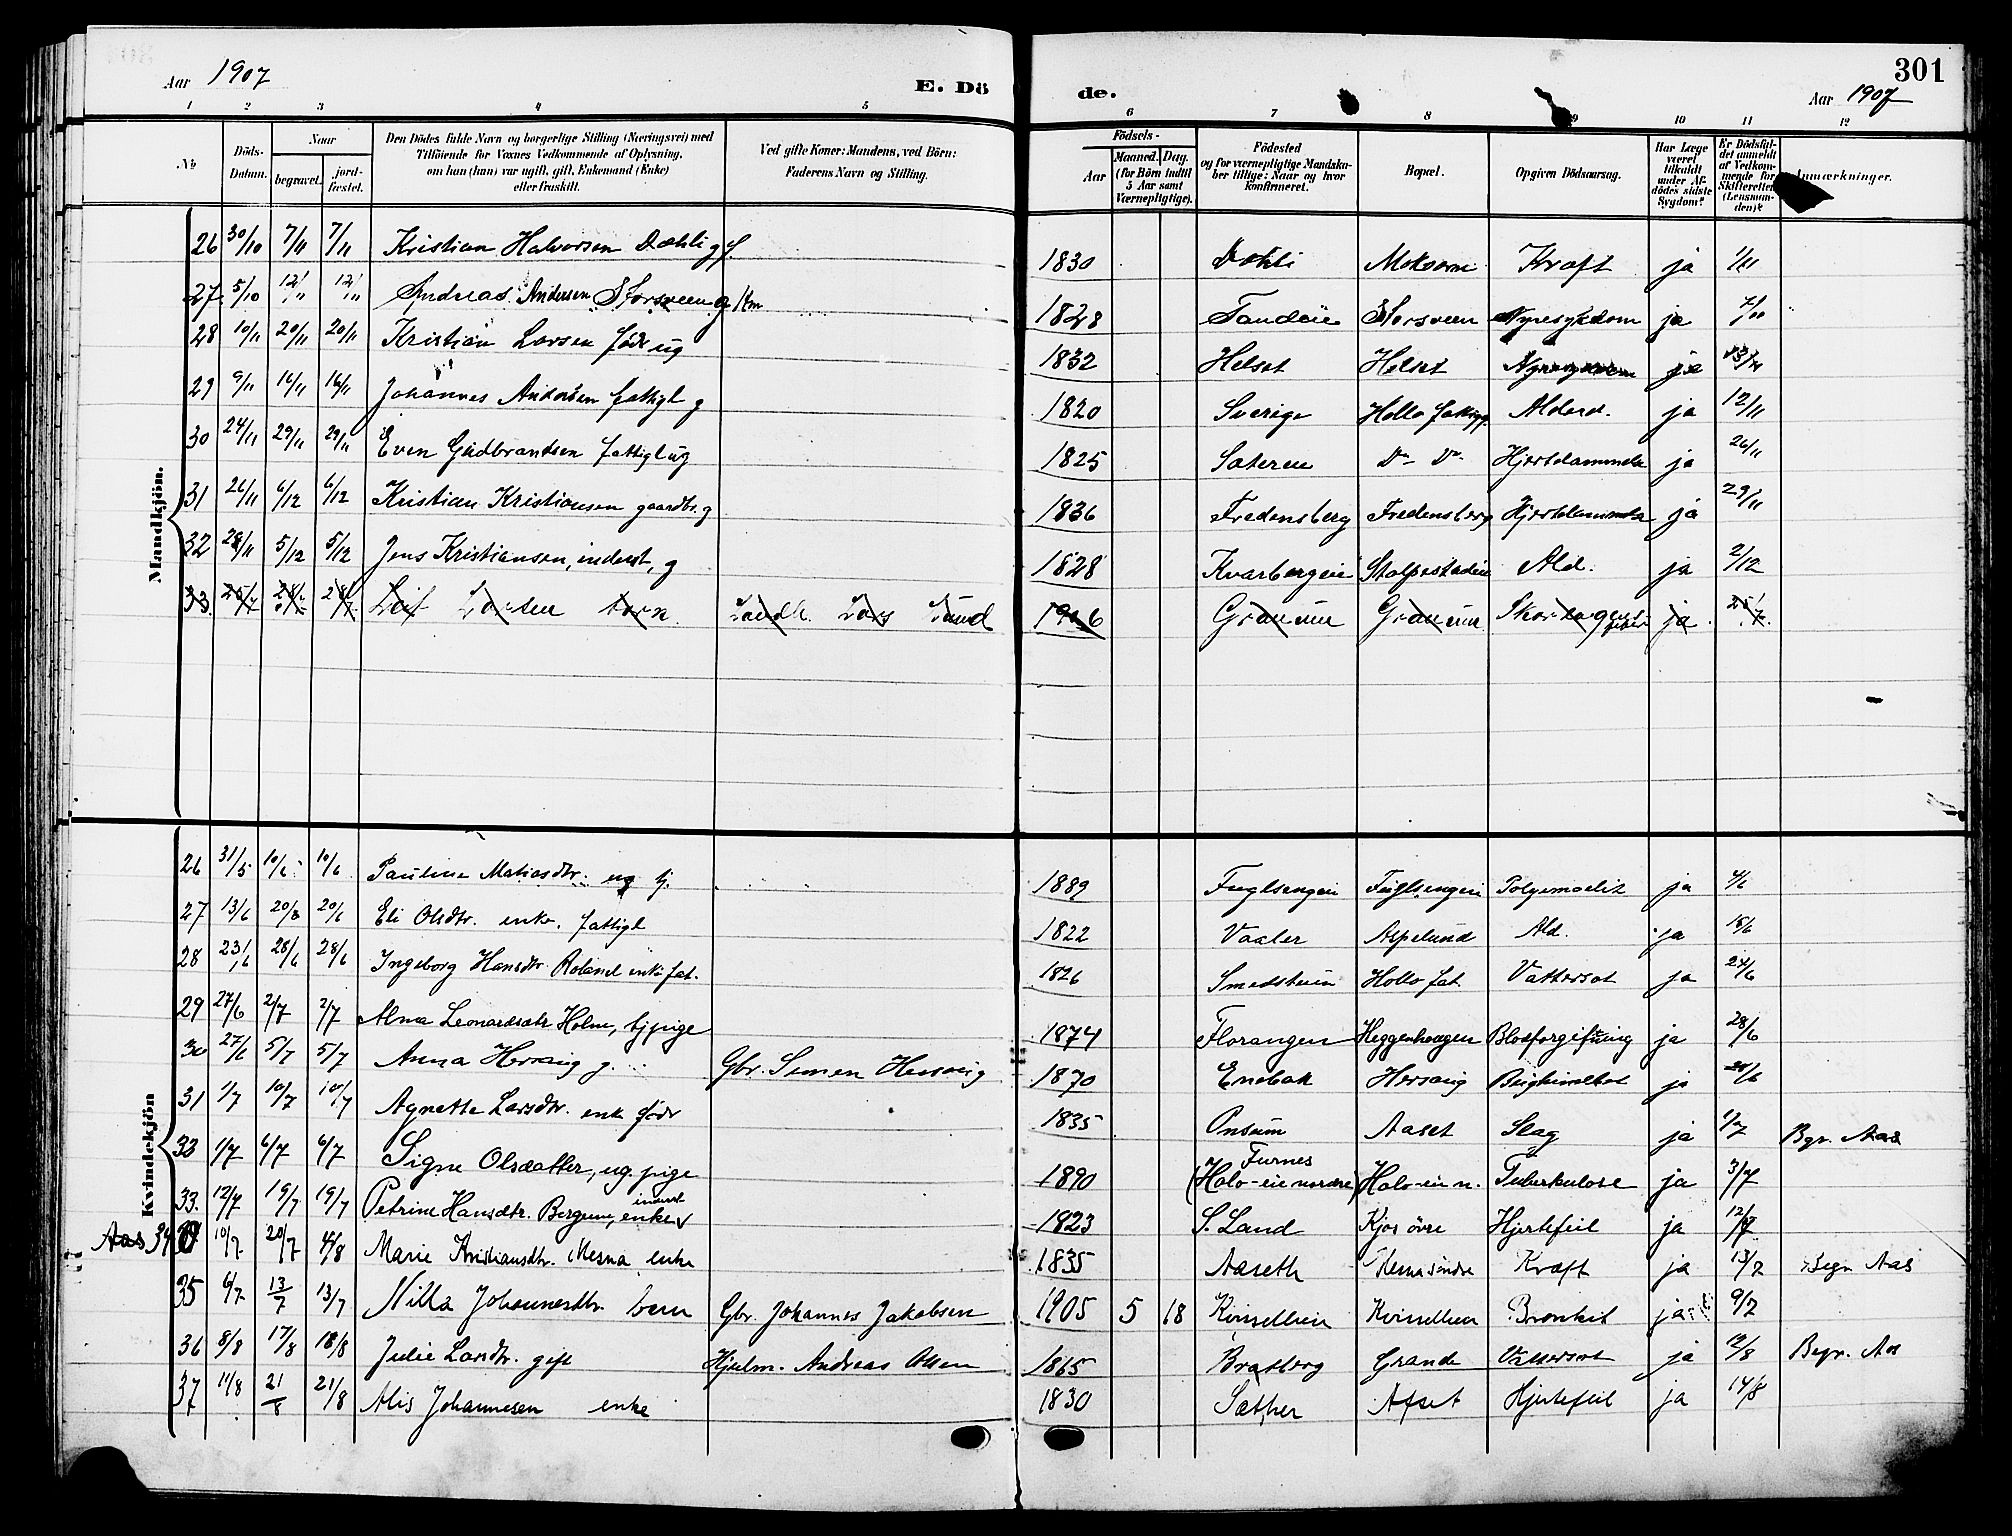 Aar 1907
E. Dö
de.
301
Aar 1907
1 2 3 4 5 6 7 8 9 10 11 12
No
Döds-Datum.
Naar
begravet.
jord-fæstet.
Den Dödes fulde Navn og borgerlige Stilling (Næringsvei) med
Tilföiende for Voxnes Vedkommende af Oplysning,
om han (hun) var ugift, gift, Enkemand (Enke)
eller fraskilt.
Ved gifte Koner: Mandens, ved Börn:
Faderens Navn og Stilling.
Födsels-
Aar
Maaned. Dag.
(for Börn indtil
5 Aar samt
Værnepligtige).
Födested
og for værnepligtige Mandska-
ber tillige: Naar og hvor
konfirmeret.
Bopæl.
Opgiven Dödsaarsag.
Har Læge
været
tilkaldt
under Af-
dödes sidste
Sygdom?
Er Dödsfal-
det anmeldt
af Vedkom-
mende for
Skifteretten
(Lensman-
den)?
Anmærkninger.
Mandkjön.
26 30/10 7/11 7/11 Kristian Halvorsen Dæhli 1830 Dæhli Kræft ja 1/11
27 5/10 12/11 12/11 Andreas Andersen Storsveen g Km 1828 Storsveen Nyresykdom ja 7/11
28 10/11 20/11 20/11 Kristian Larsen födr ug 1832 Helset Helset ja 13/11
29 9/11 16/11 16/11 Johannes Andersen fattigl g 1820 Sverige Hollo fattigg. Alderd. ja 12/11
30 24/11 29/11 29/11 Even Gudbrandsen fattigl ug 1825 Sateren Do Do Hjertelammelse ja 26/11
31 26/11 6/12 6/12 Kristian Kristiansen gaardbr. g 1836 Fredensberg Fredensberg Hjertelammelse ja 29/11
32 28/11 5/12 5/12 Jens Kristiansen, inderst, g 1828 Kvarbergeie Stolpestadeie Ald. ja 2/12
33. 25/7 28/7 28/7 Leif Larsen barn. Landh. Lars Lund 1906 Granum Granum Skarlagensfeber ja 25/7.
Kvindekjön
26 31/5 10/6 10/6 Pauline Matiasdtr. ug tj. 1889 Fuglsengen Fuglsengen ja 4/6
27 13/6 20/6 20/6 Eli Olsdtr. enke. fattigl 1822 Vaaler Aspelund Ald. ja 15/6
28 23/6 28/6 28/6 Ingeborg Hansdtr. Roland enke fat. 1826 Smedstuen Hollo fat Vattersot ja 24/6
29 27/6 2/7 2/7 Alma Leonardsdtr Holm, tj pige 1874 Florangen Heggenhaugen Blodforgiftning ja 28/6
30 27/6 5/7 5/7 Anna Hersaug g. Gbr. Simen Hersaug 1870 Enebak Hersaug ja 28/6
31 1/7 10/7 10/7 Agnethe Larsdtr. enke födr 1835 Onsum Aaset Slag ja 1/7 Bgr. Aas
32 1/7 6/7 6/7 Signe Olsdatter, ug. pige 1890 Furnes
(Holo-eie nordre) Holo-eie n. Tuberkulose ja 3/7
33. 12/7 19/7 19/7 Petrine Hansdtr. Bergum, enke inderst 1823 S. Land Kjos övre Hjertefeil ja 12/7
Aas 34 10/7. 20/7 4/8 Marie Kristiansdtr. Mesna enke 1835 Aaseth Mesna söndre Kræft ja 13/7 Begr Aas
35 6/7 13/7 13/7 Nilla Johannesdtr. barn Gbr. Johannes Jakobsen 1905 5 18 Kvisellien Kvisellien Bronkit ja 9/7
36 8/8 17/8 18/8 Julie Larsdtr. gift Hjulm. Andreas Olsen 1865 Bratberg Grande Vattersot ja 12/8 Begr. Aas
37 11/8 21/8 21/8 Alis Johannesen enke 1830 Sæther Afset Hjertefeil ja 14/8